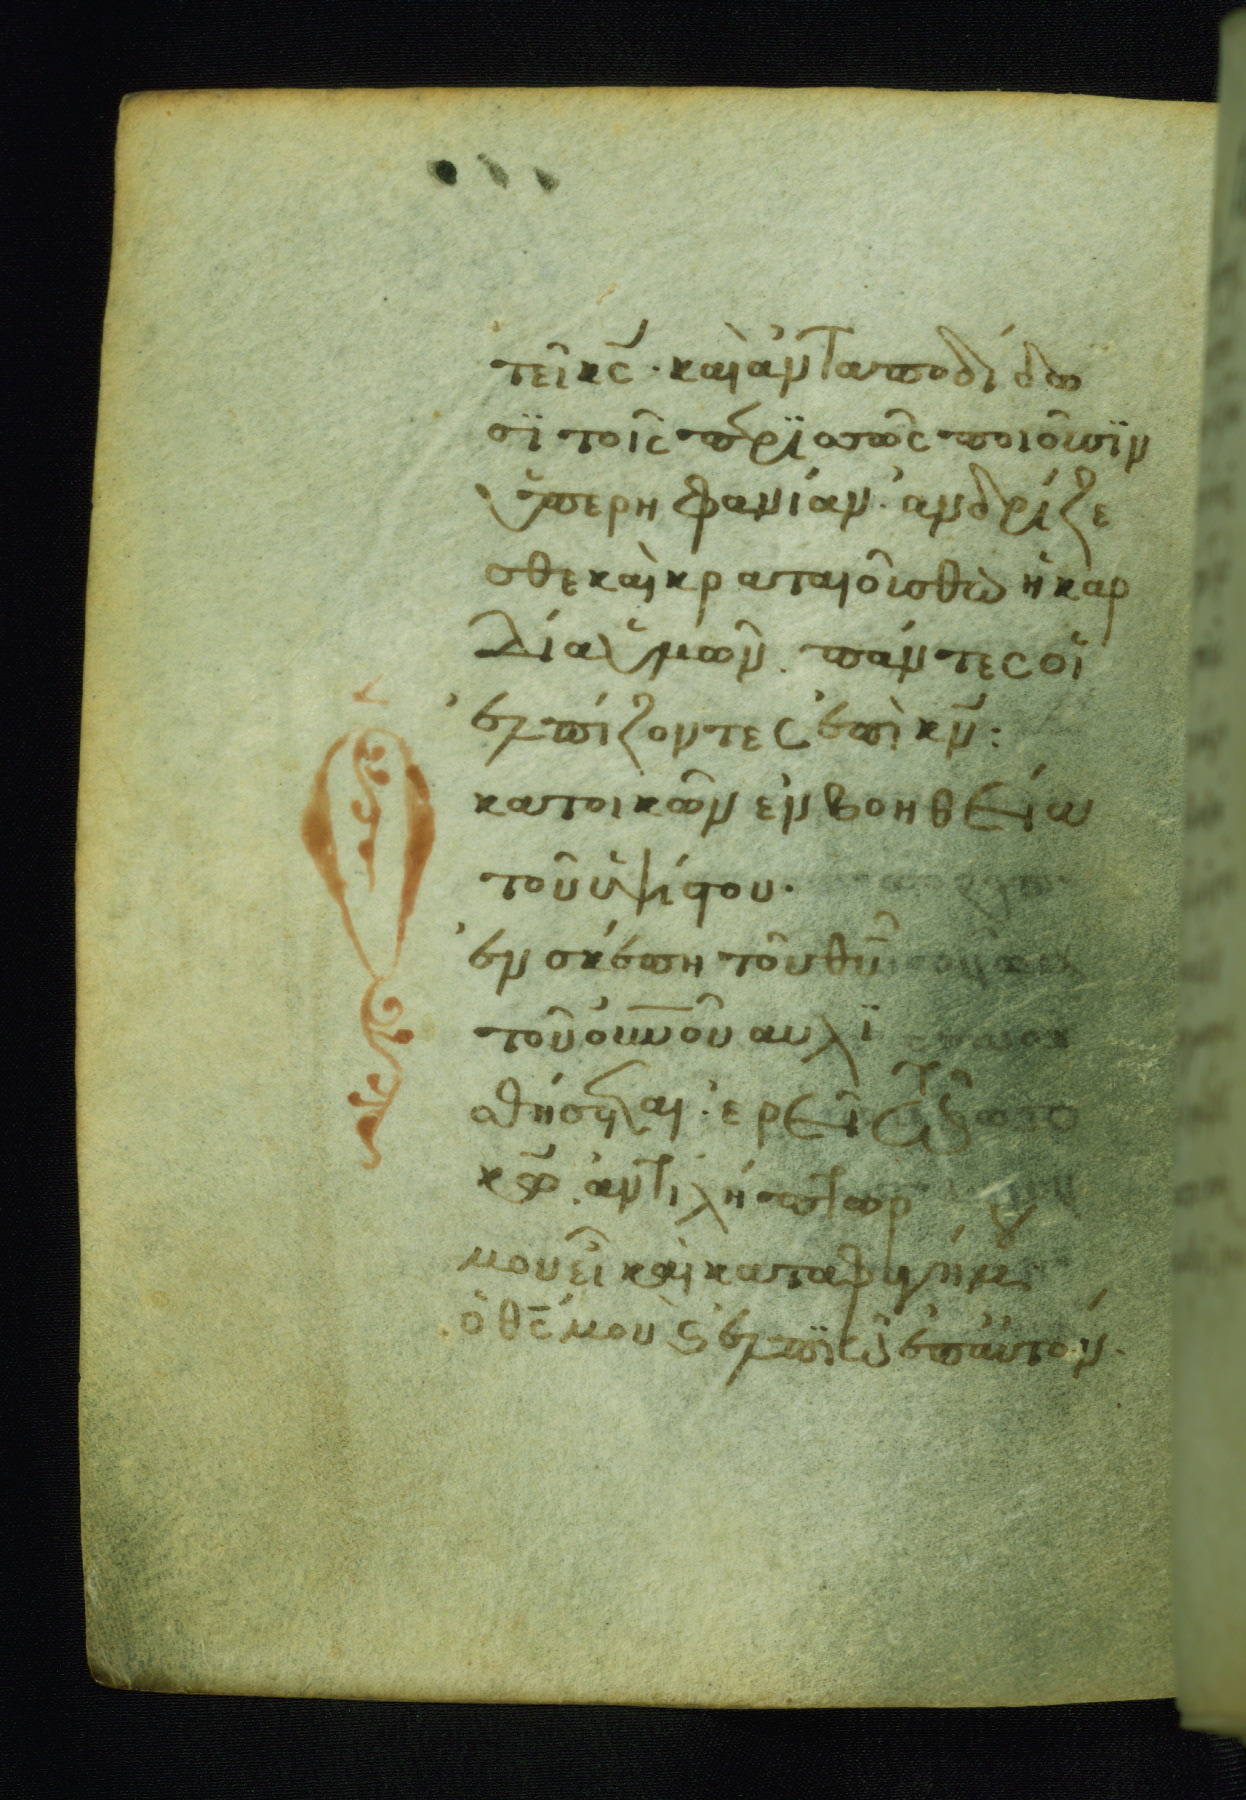 τεῖ κ̅ς̅ · καὶ ἀνταποδίδω
σϊ τοῖς περϊσσῶς ποιοῦσϊν
ὑπερηφανίαν · ἀνδρίζε
σθε καὶ κραταιούσθω ἡ καρ
δία ὑμῶν · πάντες οἱ
ἐλπίζοντες ἐπὶ κ̅ν̅ :
Ὁ κατοικῶν ἐν βοηθεία
τοῦ ὑψίστου ·
ἐν σκέπη τοῦ θ̅υ̅
τοῦ ο̅υ̅ν̅ο̅ῦ αὐλϊ
σθήσεται · ἐρεῖ τῶ
κ̅ω̅ · ἀντιλήπτωρ
μου εἶ καὶ καταφυγή μου
ὁ θ̅ς̅ μου καὶ ἐλπϊῶ ἐπ' αὐτόν ·